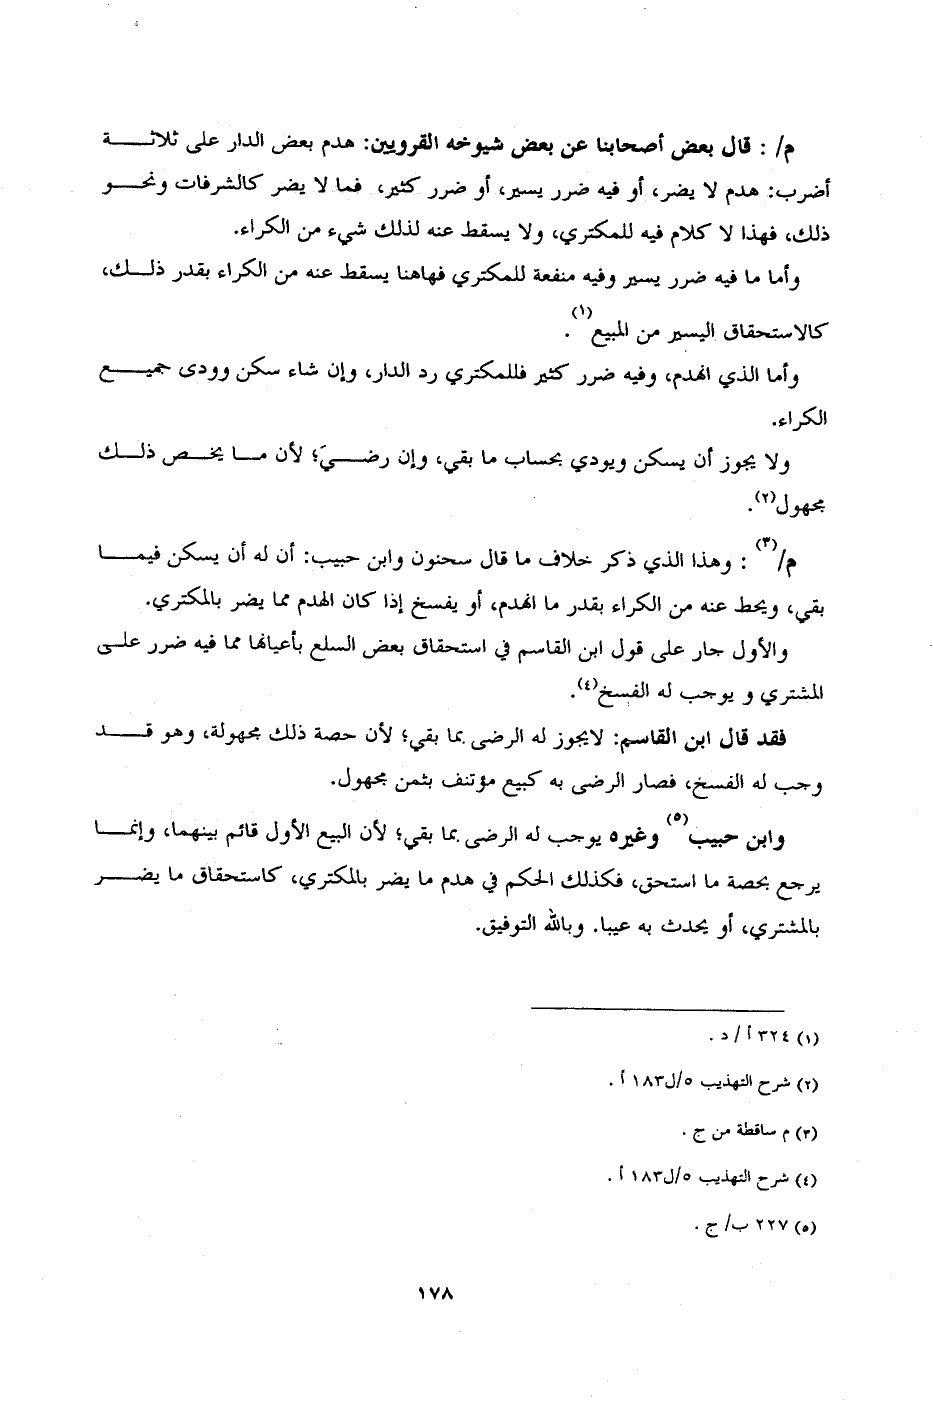 م/ : قال بعض أصحابنا عن بعض شيوخه القرويين: هدم بعض الدار على ثلاثة
أضرب: هدم لا يضر، أو فيه ضرر يسير، أو ضرر كثير، فما لا يضر كالشرفات ونحو
ذلك، فهذا لا كلام فيه للمكتري، ولا يسقط عنه لذلك شيء من الكراء.
وأما ما فيه ضرر يسير وفيه منفعة للمكتري فهاهنا يسقط عنه من الكراء بقدر ذلك،
كالاستحقاق اليسير من المبيع(١).
وأما الذي انهدم، وفيه ضرر كثير فللمكتري رد الدار، وإن شاء سكن وودى جميع
الكراء.
ولا يجوز أن يسكن ويودي بحساب ما بقي، وإن رضيَ؛ لأن ما يخص ذلك
مجهول(٢).
م/(٣) : وهذا الذي ذكر خلاف ما قال سحنون وابن حبيب: أن له أن يسكن فيما
بقي، ويحط عنه من الكراء بقدر ما انهدم، أو يفسخ إذا كان الهدم مما يضر بالمكتري.
والأول جار على قول ابن القاسم في استحقاق بعض السلع بأعيانها مما فيه ضرر على
المشتري و يوجب له الفسخ(٤).
فقد قال ابن القاسم: لايجوز له الرضى بما بقي؛ لأن حصة ذلك مجهولة، وهو قد
وجب له الفسخ، فصار الرضى به كبيع مؤتنف بثمن مجهول.
وابن حبيب(٥) وغيره يوجب له الرضى بما بقي؛ لأن البيع الأول قائم بينهما، وإنما
يرجع بحصة ما استحق، فكذلك الحكم في هدم ما يضر بالمكتري، كاستحقاق ما يضر
بالمشتري، أو يحدث به عيبا. وبالله التوفيق.
(١) ٣٢٤ أ/ د .
(٢) شرح التهذيب ٥/ل١٨٣ أ .
(٣) م ساقطة من ج .
(٤) شرح التهذيب ٥/ل١٨٣ أ .
(٥) ٢٢٧ ب/ ج .
١٧٨